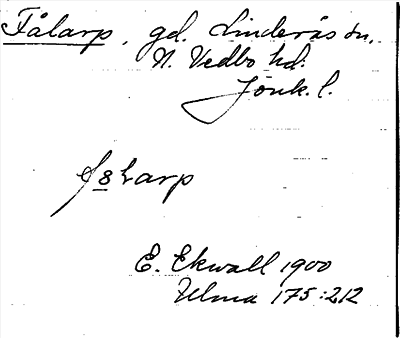 Fålarp, gd. Linderås sn.,
N. Vedbo hd.
Jönk. l.
E. Ekwall 1900
Ulma 175:212